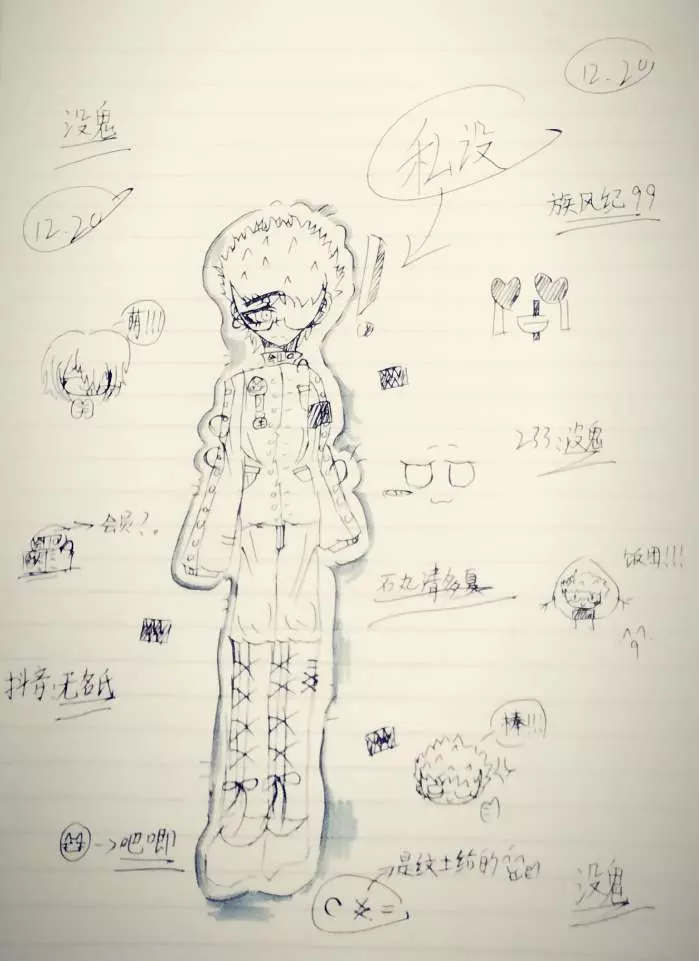 12.20
没鬼
私设
族风纪99
12.20
萌!!!
233:没鬼
会员?。
饭团!!!
石丸清多夏
抖音:无名氏
棒!!!
->吧唧
是纹土给的
没鬼